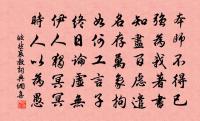 本師不得已
強為我著書
知盡百慮遣
名存萬象拘
如何工言子
終日論虛無
伊人獨冥冥
時人以為愚